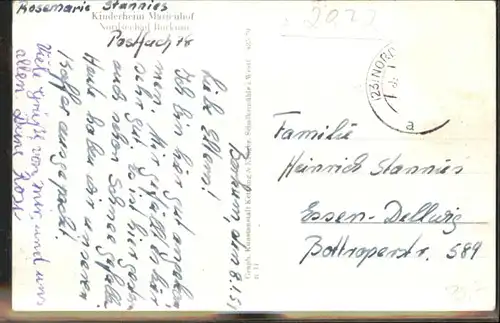 Rosemarie Stannies
Kinderheim Marienhof
Nordseebad Borkum
Postfach 78
Borkum, den 8.1.51
Liebe Eltern!
Ich bin hier gut angekom
men. Mir gefällt es hier
sehr gut. Es ist hier gestern
auch schon Schnee gefallen.
Heute haben wir unseren
Koffer ausgepackt.
Viele Grüße von mir und an
allen. Deine Rosi
Graph. Kunstanstalt Schöning &
(23) NORD
a
Familie
Heinrich Stannies
Essen-Dellwig
Bottroperstr. 589